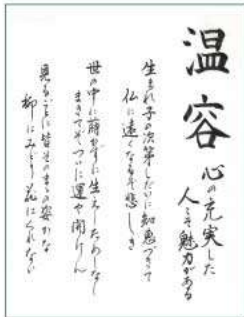 温容
心の充実した
人こそ魅力がある
生まれ子の次第しだいに知恵つきて
仏に遠くなるぞ悲しき
世の中に蒔かずに生えしためしなし
まきてぞついに運や開けん
見るごとに皆そのままの姿かな
柳はみどり花はくれない